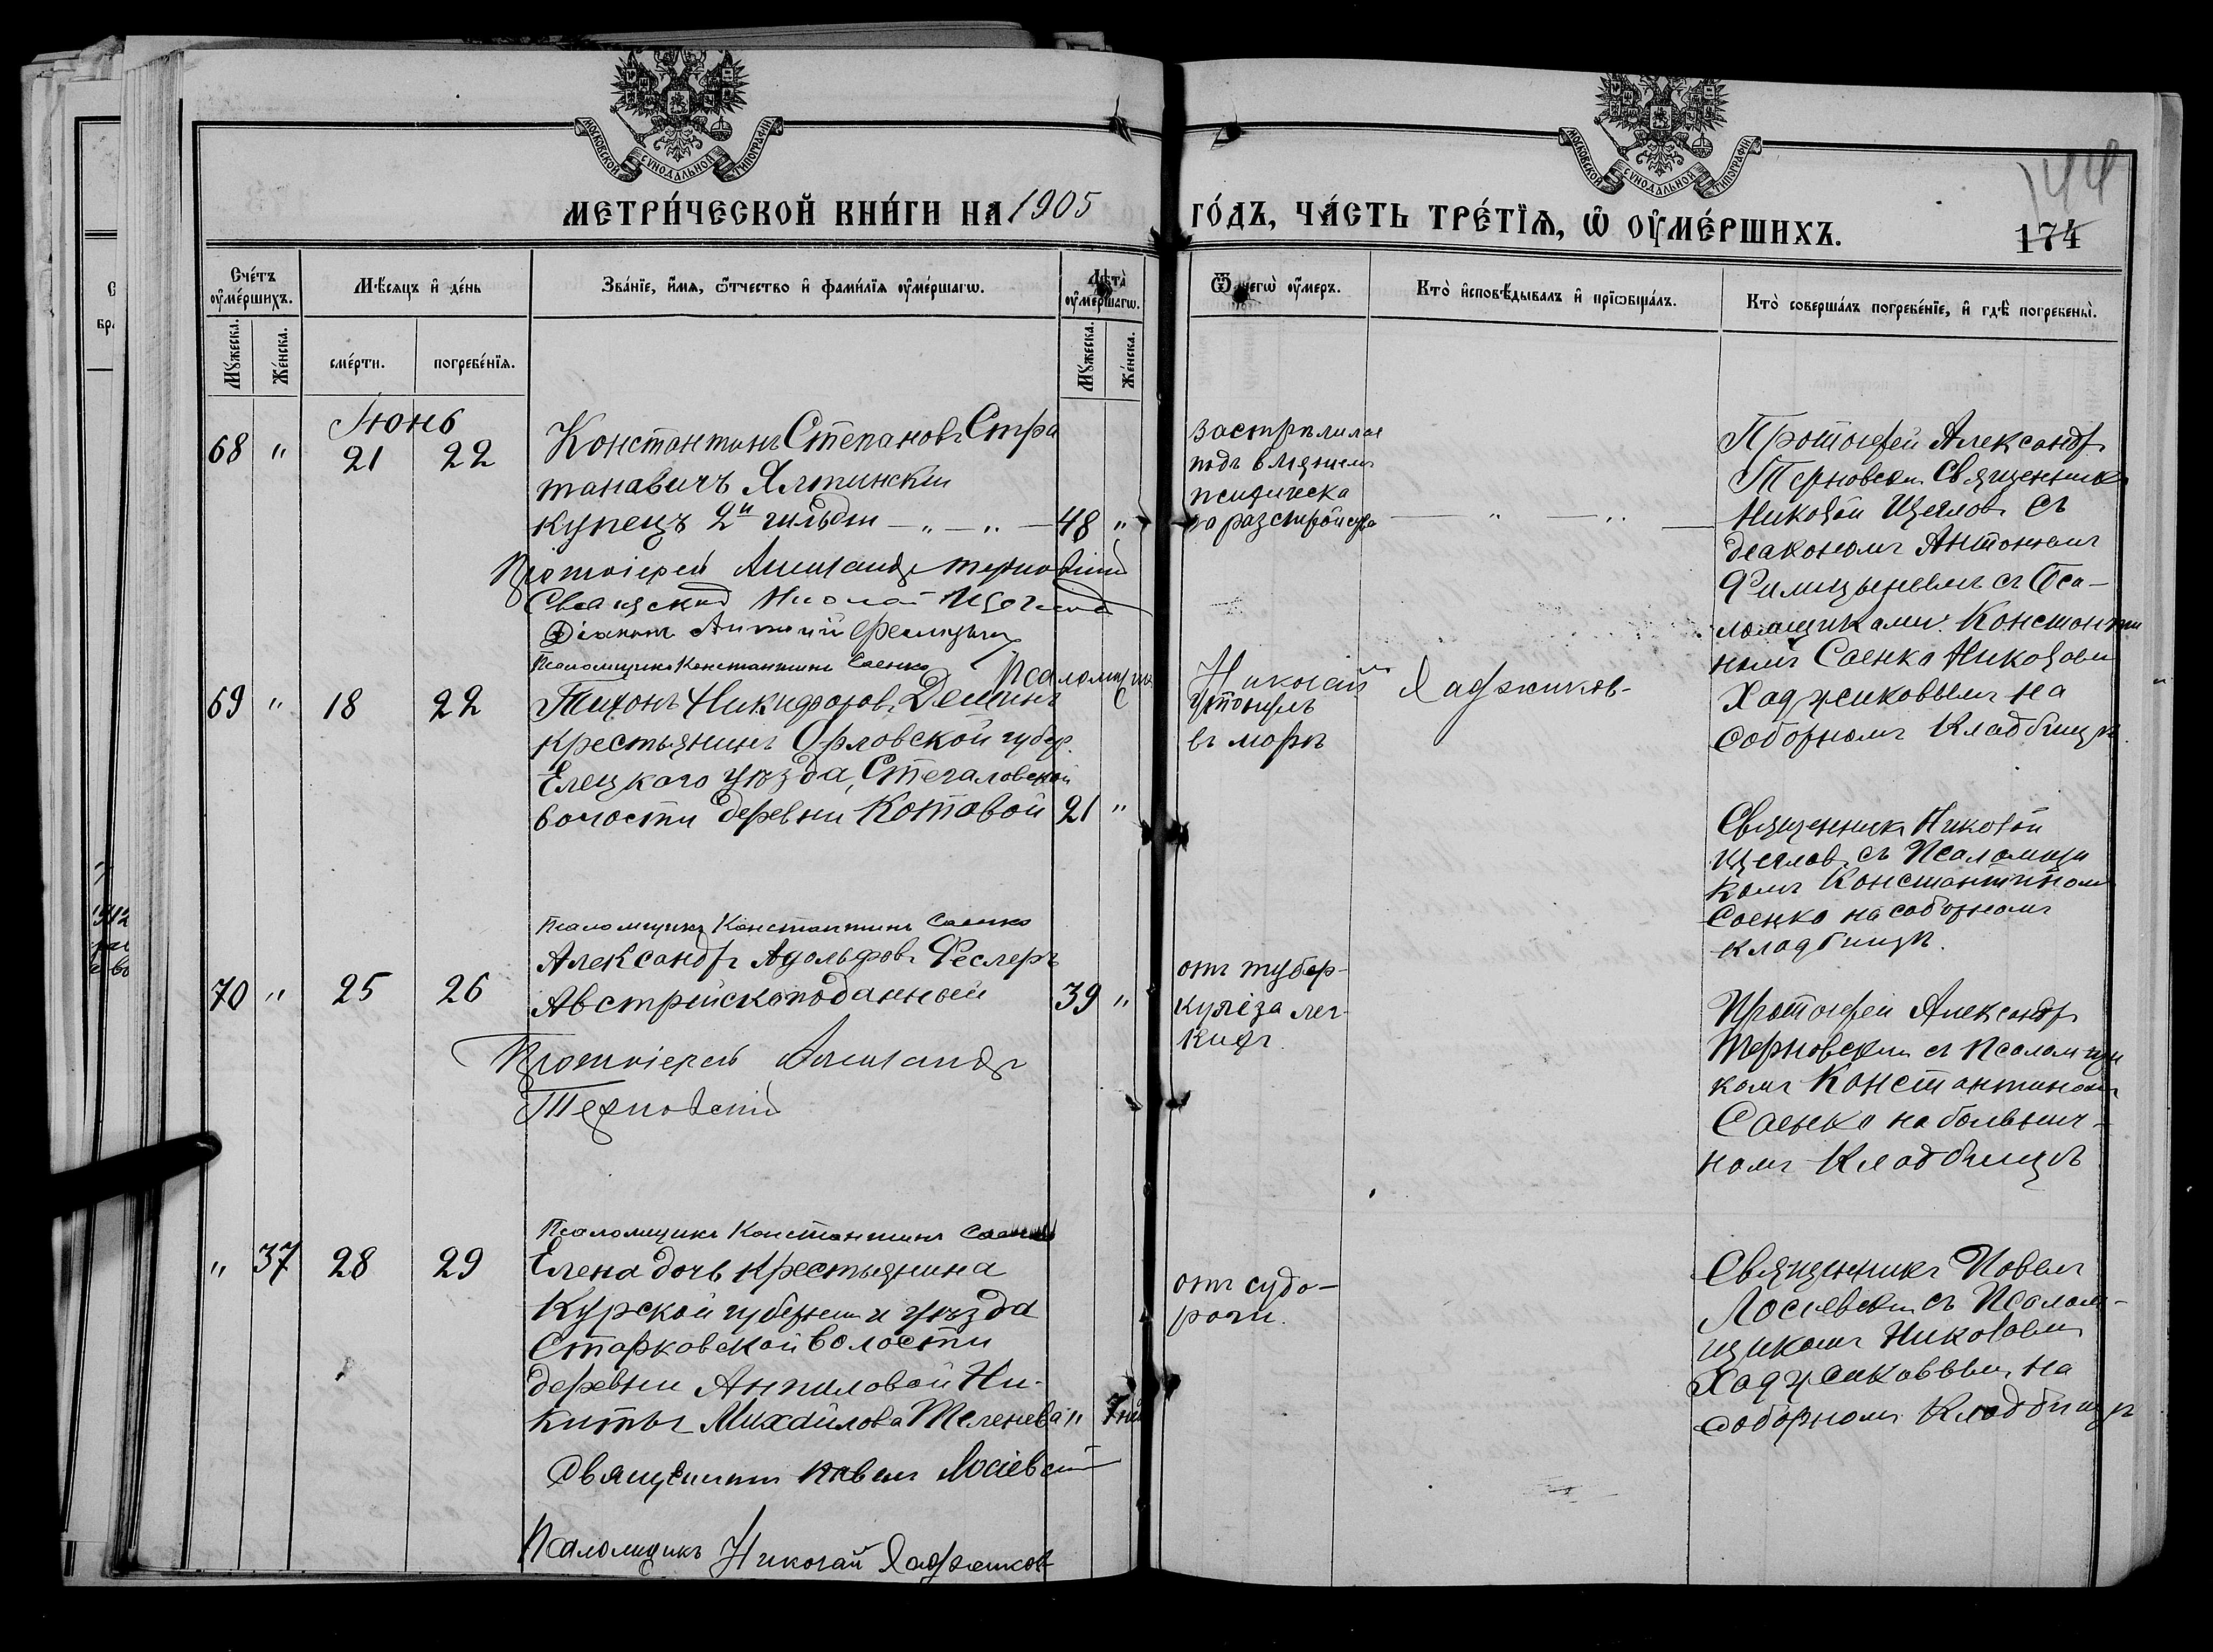 МОСКОВСКОЙ СУНОДАЛЬНОЙ ТИПОГРАФІИ
МОСКОВСКОЙ СУНОДАЛЬНОЙ ТИПОГРАФІИ
МЕТРИ́ЧЕСКОЙ КНИ́ГИ НА 1905
ГО́ДЪ, ЧА́СТЬ ТРЕ́ТЇѦ, Ѡ҆ ОУ҆МЕ́РШИХЪ.
144
174
Сче́тъ оу҆ме́ршихъ.
Мѣ́сяцъ и҆ де́нь
Зва́нїе, и҆́мя, ѻ҆́тчество и҆ фами́лїя оу҆ме́ршагѡ.
Лѣ́та оу҆ме́ршагѡ.
Ѿ чегѡ̀ оу҆́меръ.
Кто̀ и҆сповѣ́дывалъ и҆ прїѡбща́лъ.
Кто̀ соверша́лъ погребе́нїе, и҆ гдѣ̀ погребены̀.
Мꙋ́жеска.
Же́нска.
сме́рти.
погребе́нїя.
Мꙋ́жеска.
Же́нска.
Іюнь
68 " 21 22
Константинъ Степановъ Стра
танавичъ Ялтинскій
купецъ 2й гильдіи — „ — „ — 48 "
Протоіерей Александръ Терновскій
Священникъ Николай Щегловъ
Діаконъ Антоній Филицынъ
Псаломщикъ Константинъ Саенко
Псаломщикъ Николай Хаджиковъ
застрѣлился
подъ вліяніемъ
психическа
го разстройства
Протоіерей Александръ
Терновскій Священникъ
Николай Щегловъ съ
діакономъ Антоніемъ
Филицынымъ съ Пса-
ломщиками: Константи
номъ Саенко Николаемъ
Хаджиковымъ на
Соборномъ Кладбищѣ
69 " 18 22
Тихонъ Никифоровъ Деминъ
крестьянинъ Орловской губер.
Елецкаго уѣзда, Стегаловской
волости деревни Котовой 21 "
утонулъ
въ морѣ
Священникъ Николай
Щегловъ съ Псаломщи
комъ Константиномъ
Саенко на соборномъ
кладбищѣ.
Псаломщикъ Константинъ Саенко
70 " 25 26
Александръ Адольфовъ Феслеръ
Австрійскоподанный 39 "
Протоіерей Александръ
Терновскій
отъ тубер-
куліза лег-
кихъ.
Протоіерей Александръ
Терновскій съ псаломщи
комъ Константиномъ
Саенко на больнич-
номъ Кладбищѣ
Псаломщикъ Константинъ Саенко
" 37 28 29
Елена дочь крестьянина
Курской губерніи и уѣзда
Старковской волости
деревни Анпиловой Ни-
киты Михайлова Теленева "
Священникъ Павелъ Лосіевскій
Псаломщикъ Николай Хаджиковъ
отъ судо-
роги.
Священникъ Павелъ
Лосіевскій съ Псалом-
щикомъ Николаемъ
Хаджиковымъ на
соборномъ Кладбищѣ